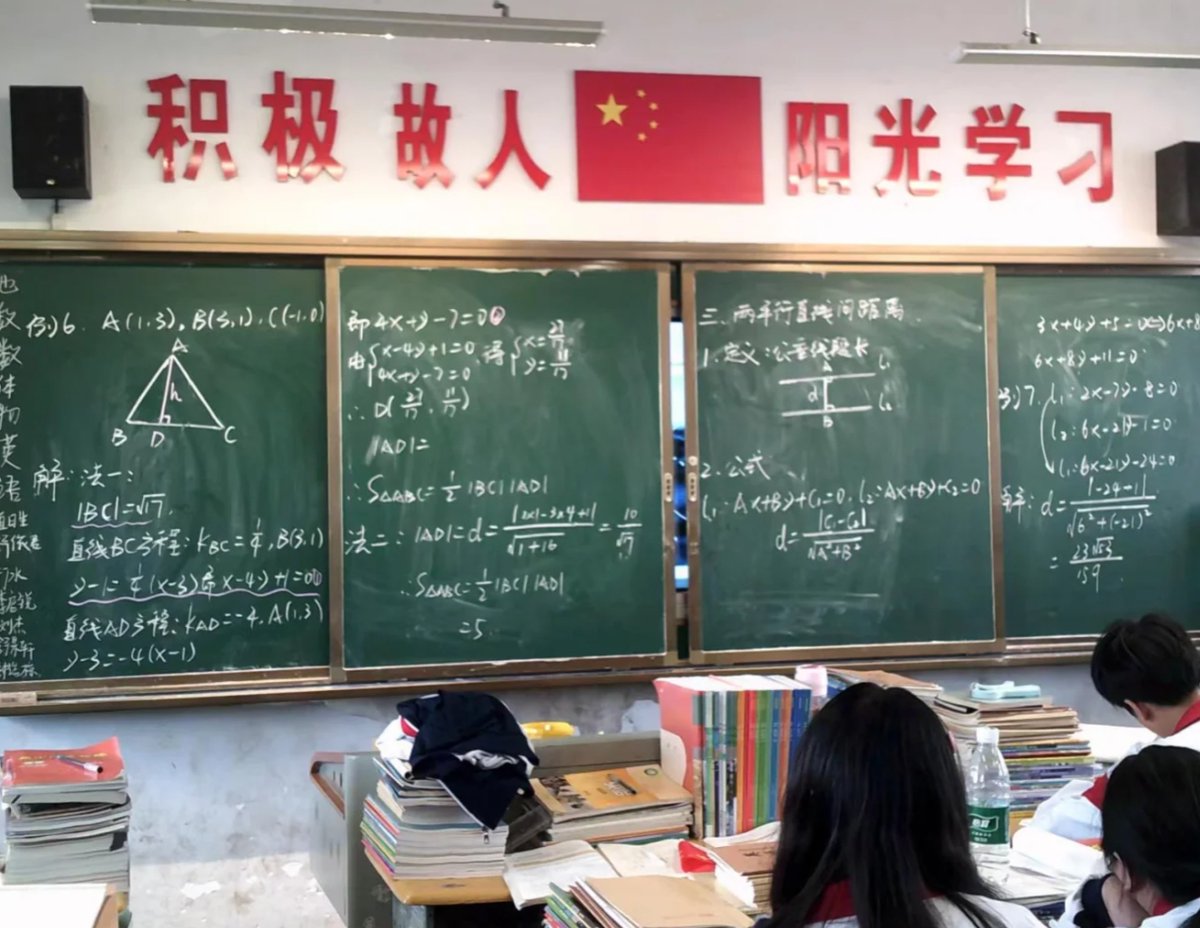 积极 故人 阳光学习
例6. A(1,3), B(3,1), C(-1,0)
A
h
B D C
解:法一:
|BC|=√17.
直线BC方程: K_BC=1/4, B(3,1)
y-1=1/4(x-3)即x-4y+1=0①
直线AD方程: K_AD=-4, A(1,3)
y-3=-4(x-1)
即4x+y-7=0②
由{x-4y+1=0 4x+y-7=0 得{x=27/17 y=11/17
∴D(27/17, 11/17)
|AD|=
∴S△ABC=1/2|BC||AD|
法二: |AD|=d=|1×1-3×4+1|/√(1+16)=10/√17
∴S△ABC=1/2|BC||AD|
=5.
三、两平行直线间距离
1.定义:公垂线段长
A l₁
d
B l₂
2.公式
l₁:Ax+By+C₁=0, l₂:Ax+By+C₂=0
d=|C₁-C₂|/√(A²+B²)
3x+4y+5=0⇔6x+8
6x+8y+11=0
例7. l₁:2x-7y-8=0
l₂:6x-21y-1=0
l₁:6x-21y-24=0
解: d=|-24-1|/√(6²+(-21)²)
=23√53/159.